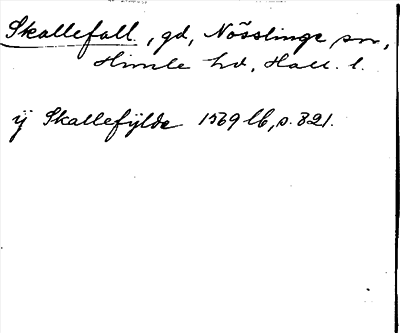 Skallefall, gd, Nösslinge sn,
Himle hd, Hall. l.
ÿ Skallefylde 1569 lb, s. 821.